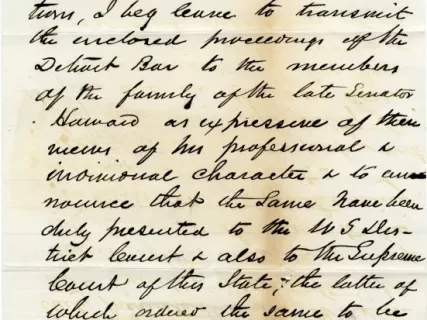 tion, I beg leave to transmit
the enclosed proceedings of the
Detroit Bar to the members
of the family of the late Senator
Howard as expressive of their
views of his professional &
individual character & to an-
nounce that the same have been
duly presented to the U S Dis-
trict Court & also to the Supreme
Court of this State; the latter of
which ordered the same to be